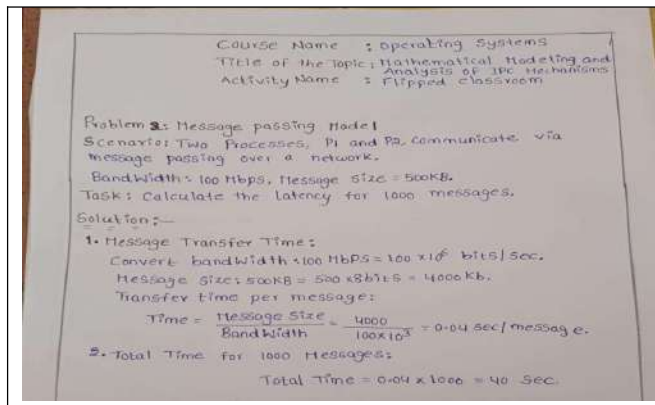 Course Name : Operating Systems
Title of the Topic : Mathematical Modeling and
Analysis of IPC Mechanisms
Activity Name : Flipped classroom
Problem 2: Message passing Model
Scenario: Two Processes, P1 and P2, communicate via
message passing over a network.
Bandwidth: 100 Mbps, Message size = 500KB.
Task: Calculate the latency for 1000 messages.
Solution:-
1. Message Transfer Time:
Convert bandwidth: 100 Mbps = 100 x 10⁶ bits/sec.
Message Size: 500KB = 500 x 8bits = 4000 Kb.
Transfer time per message:
Time = Message Size / Bandwidth = 4000 / 100x10³ = 0.04 sec/message.
2. Total Time for 1000 Messages:
Total Time = 0.04 x 1000 = 40 Sec.